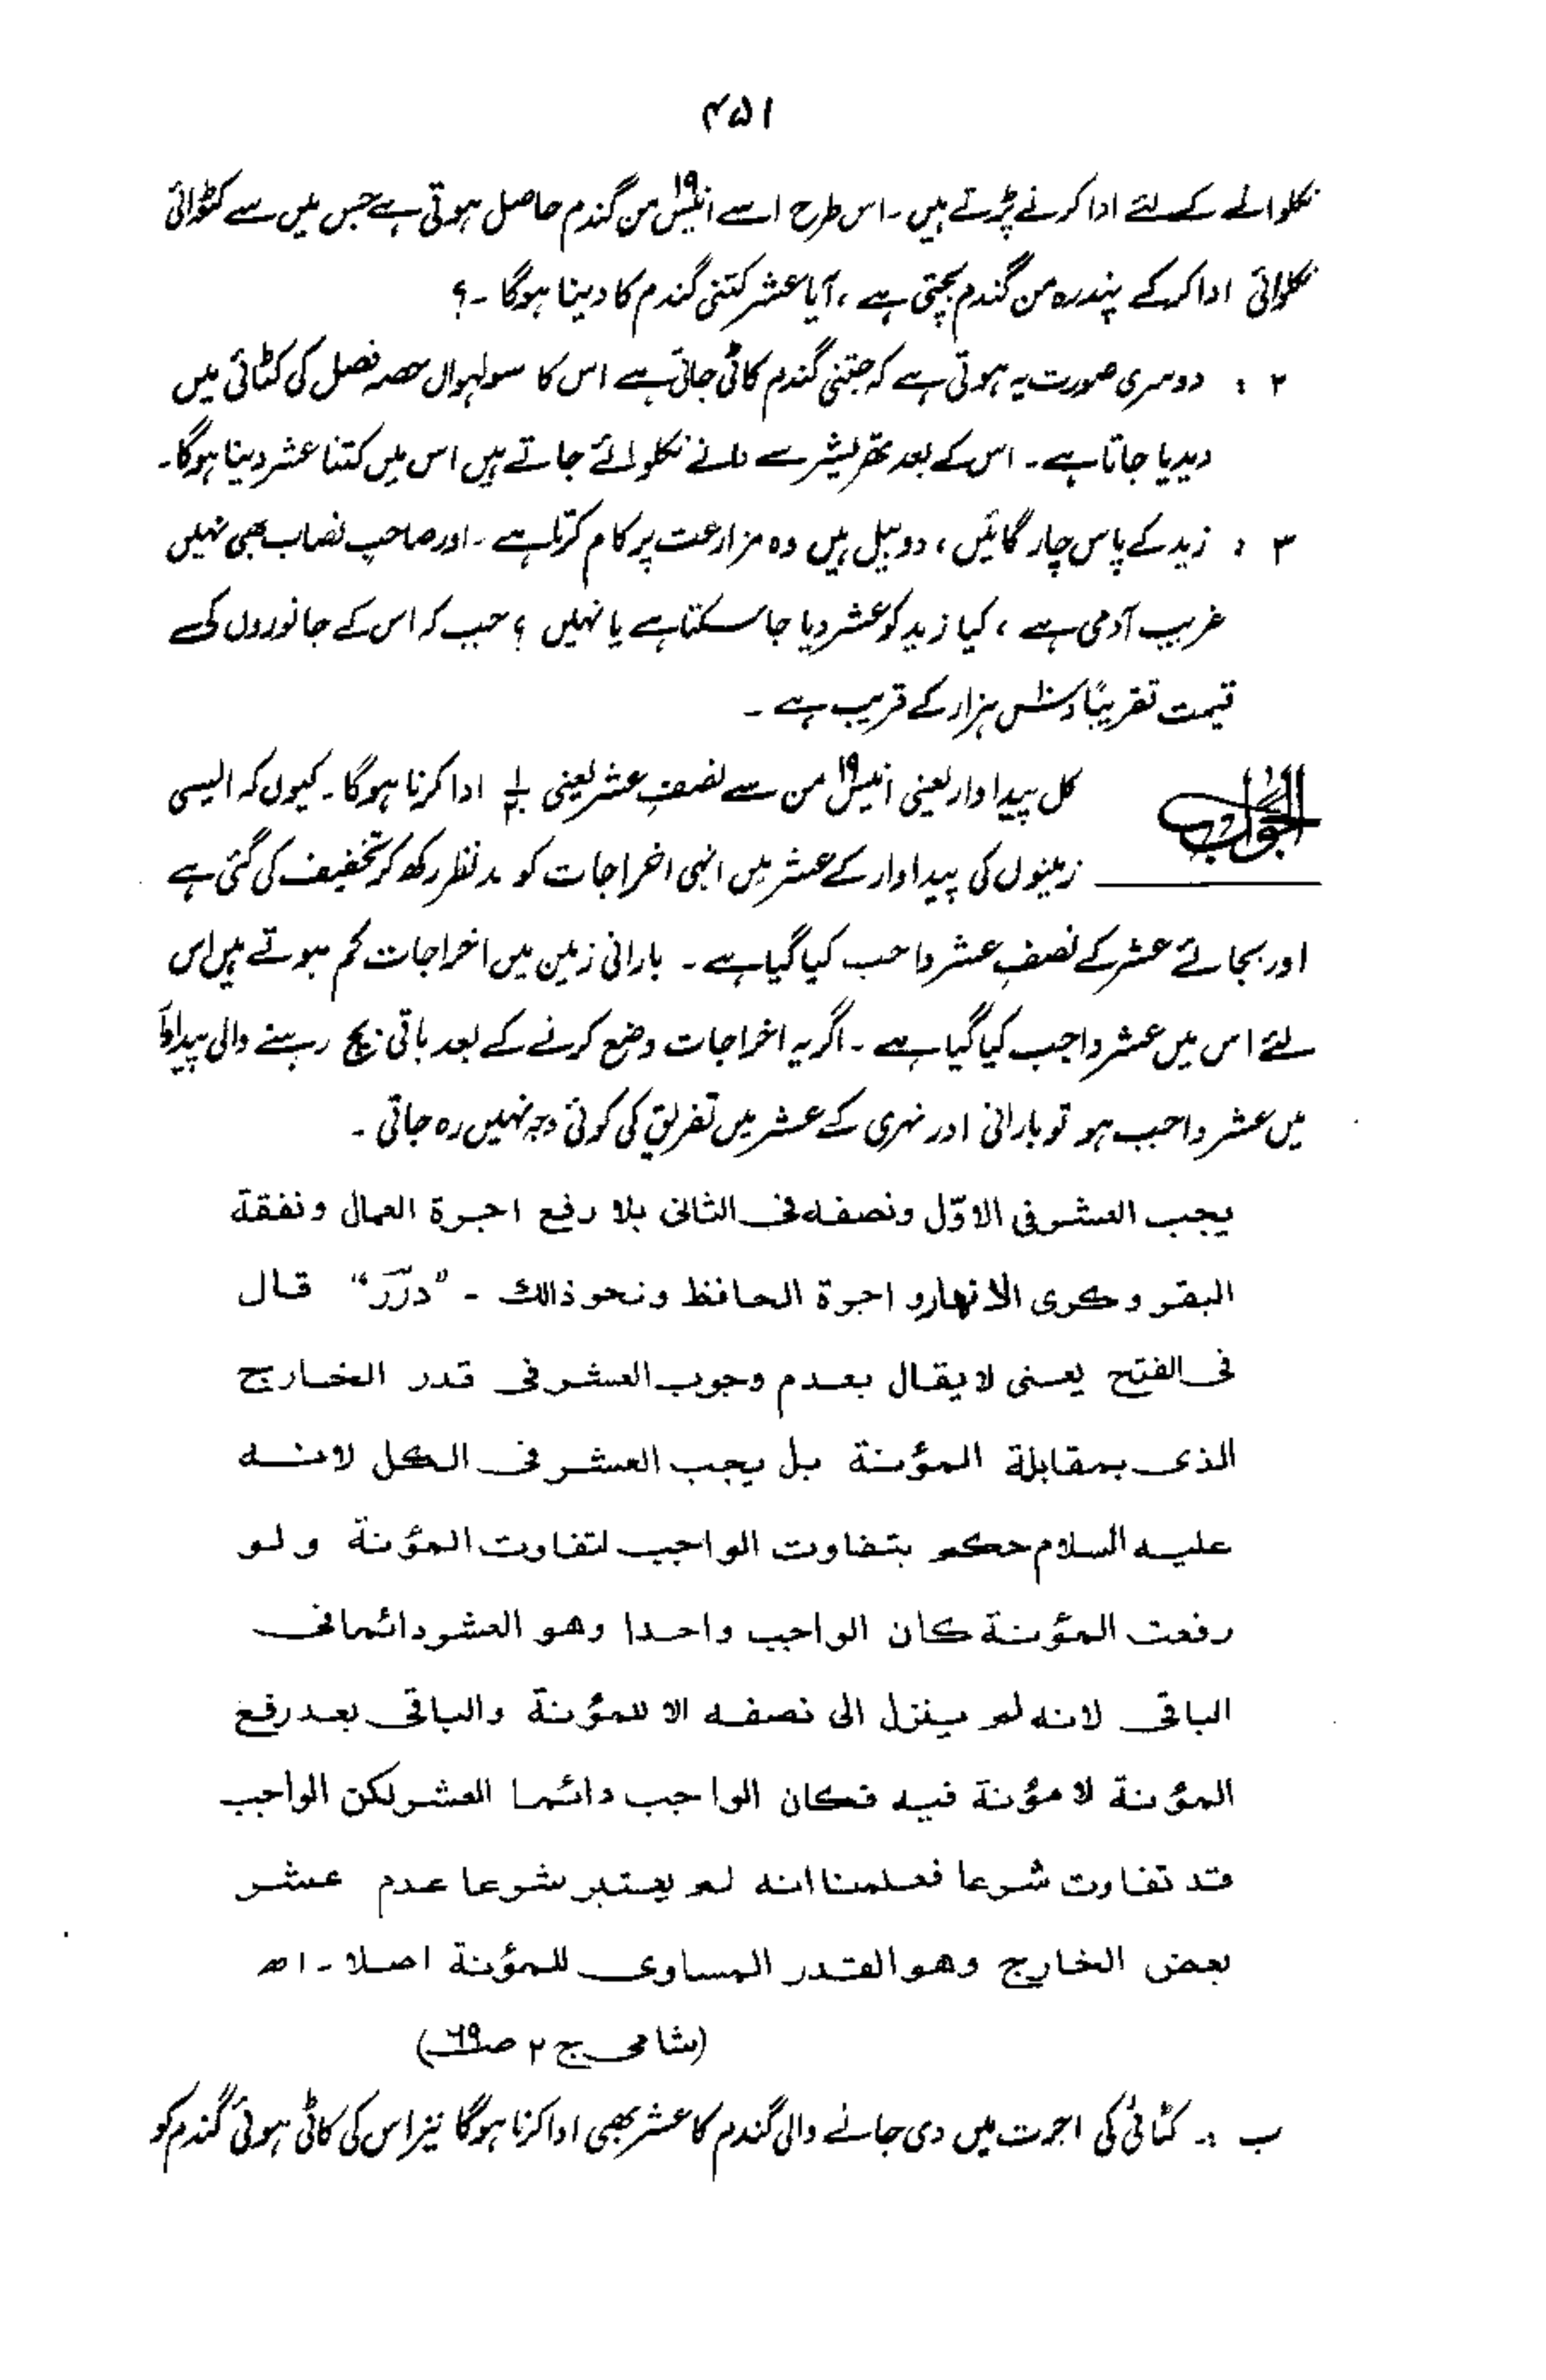 ۴۵۱
نکلوانے کے لئے ادا کرنے پڑتے ہیں ۔ اس طرح اسے انیس۱۹ من گندم حاصل ہوتی ہے جس میں سے کٹوائی
نکلوائی ادا کر کے پندرہ من گندم بچتی ہے ، آیا عشر کتنی گندم کا دینا ہوگا ۔؟
۲ : دوسری صورت یہ ہوتی ہے کہ جتنی گندم کاٹی جاتی ہے اس کا سولہواں حصہ فصل کی کٹائی میں
دیدیا جاتا ہے ۔ اس کے بعد تھریشر سے دانے نکلوائے جاتے ہیں اس میں کتنا عشر دینا ہوگا ۔
۳ : زید کے پاس چار گائیں ، دو بیل ہیں وہ مزارعت پر کام کرتا ہے ۔ اور صاحب نصاب بھی نہیں
غریب آدمی ہے ، کیا زید کو عشر دیا جا سکتا ہے یا نہیں ؟ جب کہ اس کے جانوروں کی
قیمت تقریبًا دس۱۰ ہزار کے قریب ہے ۔
الجواب کل پیداوار یعنی انیس۱۹ من سے نصفِ عشر یعنی ۱/۲۰ ادا کرنا ہوگا ۔ کیوں کہ ایسی
زمینوں کی پیداوار کے عشر میں انہی اخراجات کو مد نظر رکھ کر تخفیف کی گئی ہے
اور بجائے عشر کے نصفِ عشر واجب کیا گیا ہے ۔ بارانی زمین میں اخراجات کم ہوتے ہیں اس
لئے اس میں عشر واجب کیا گیا ہے ۔ اگر یہ اخراجات وضع کرنے کے بعد باقی بچ رہنے والی پیداوار
میں عشر واجب ہو تو بارانی اور نہری کے عشر میں تفریق کی کوئی وجہ نہیں رہ جاتی ۔
یجب العشر فی الاوّل ونصفه فی الثانی بلا رفع اجرة العمال ونفقة
البقر وکری الانهار و اجرة الحافظ ونحو ذالك ۔ "درر" قال
فی الفتح یعنی لا یقال بعدم وجوب العشر فی قدر الخارج
الذی بمقابلة المؤنة بل یجب العشر فی الکل لانه
علیه السلام حکم بتفاوت الواجب لتفاوت المؤنة ولو
رفعت المؤنة کان الواجب واحدا وهو العشر دائما فی
الباقی لانه لم ینزل الی نصفه الا للمؤنة والباقی بعد رفع
المؤنة لا مؤنة فیه فکان الواجب دائما العشر لکن الواجب
قد تفاوت شرعا فعلمنا انه لم یعتبر شرعا عدم عشر
بعض الخارج وهو القدر المساوی للمؤنة اصلا ۔ اھ
(شامی ج ۲ ص۶۹)
ب :۔ کٹائی کی اجرت میں دی جانے والی گندم کا عشر بھی ادا کرنا ہوگا نیز اس کی کاٹی ہوئی گندم کو